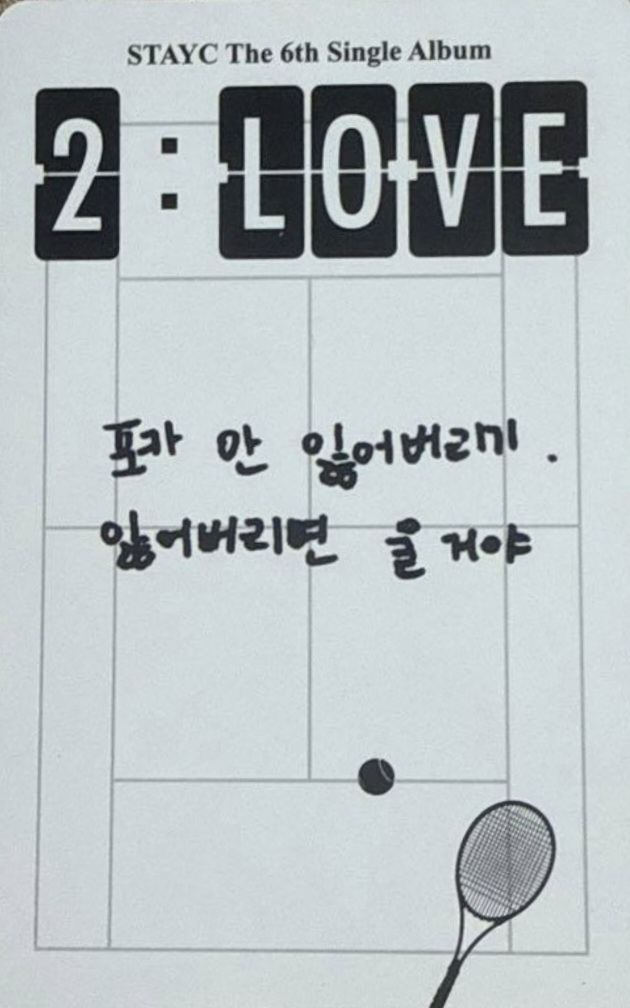 STAYC The 6th Single Album
2:LOVE
포카 안 잃어버리기.
잃어버리면 울 거야